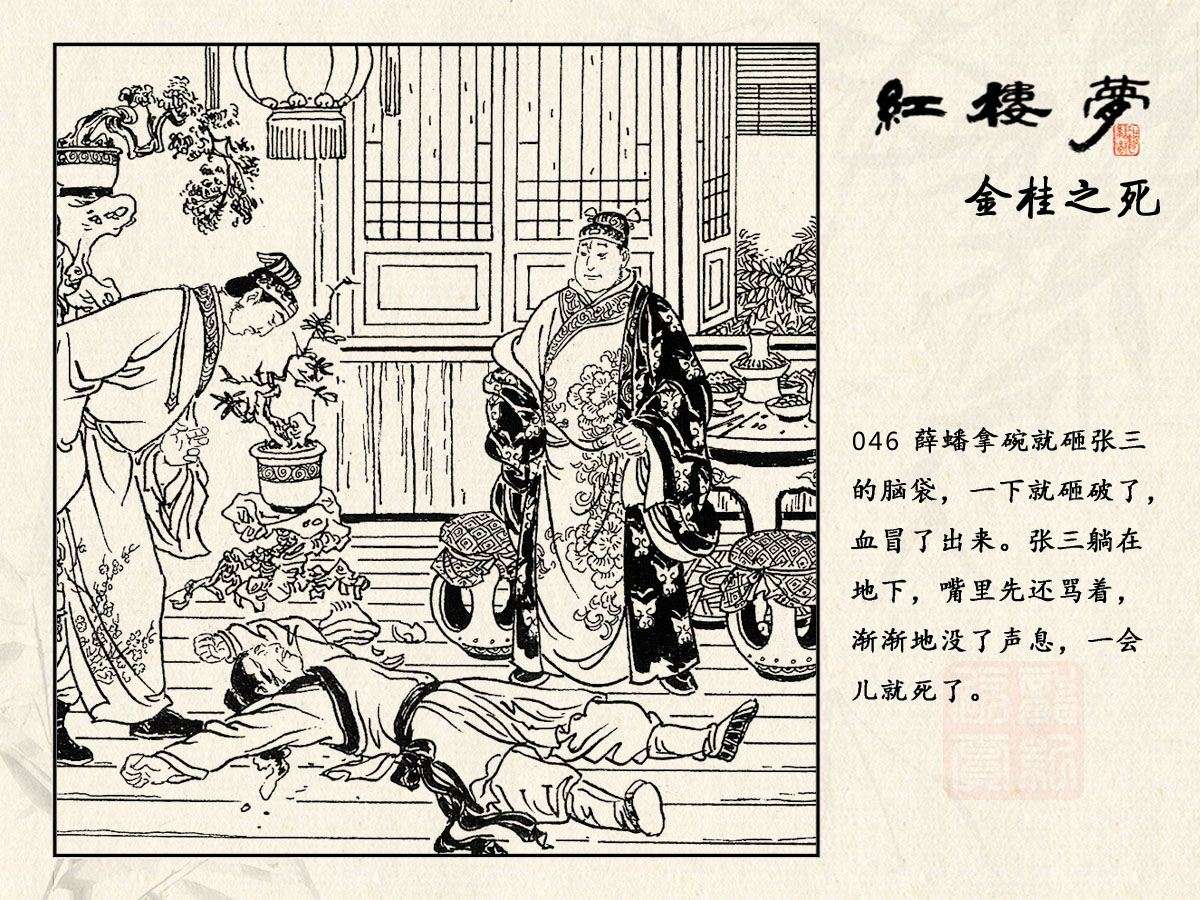 紅樓夢
金桂之死
046 薛蟠拿碗就砸张三
的脑袋，一下就砸破了，
血冒了出来。张三躺在
地下，嘴里先还骂着，
渐渐地没了声息，一会
儿就死了。